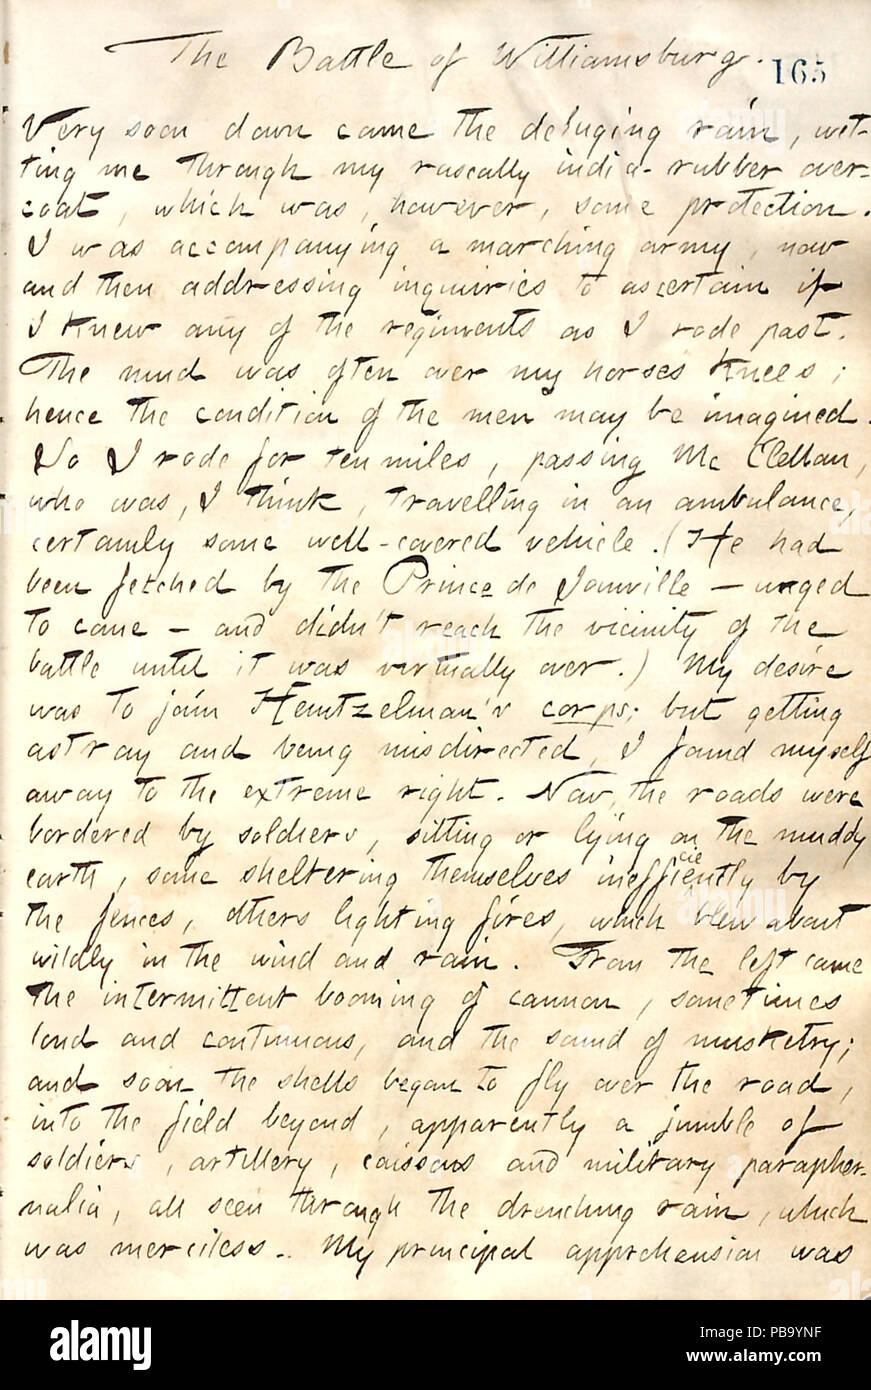 The Battle of Williamsburg.
165
Very soon down came the deluging rain, wet-
ting me through my rascally india-rubber over-
coat, which was, however, some protection.
I was accompanying a marching army, now
and then addressing inquiries to ascertain if
I knew any of the regiments as I rode past.
The mud was often over my horses knees;
hence the condition of the men may be imagined.
So I rode for ten miles, passing Mc Clellan,
who was, I think, travelling in an ambulance,
certainly some well-covered vehicle. (He had
been fetched by the Prince de Joinville — urged
to come — and didn't reach the vicinity of the
battle until it was virtually over.) My desire
was to join Heintzelman's corps; but getting
astray and being misdirected, I found myself
away to the extreme right. Now, the roads were
bordered by soldiers, sitting or lying on the muddy
earth, some sheltering themselves inefficiently by
the fences, others lighting fires, which blew about
wildly in the wind and rain. From the left came
the intermittent booming of cannon, sometimes
loud and continuous, and the sound of musketry;
and soon the shells began to fly over the road,
into the field beyond, apparently a jumble of
soldiers, artillery, caissons and military parapher-
nalia, all seen through the drenching rain, which
was merciless. My principal apprehension was
alamy
Image ID: PB9YNF
www.alamy.com